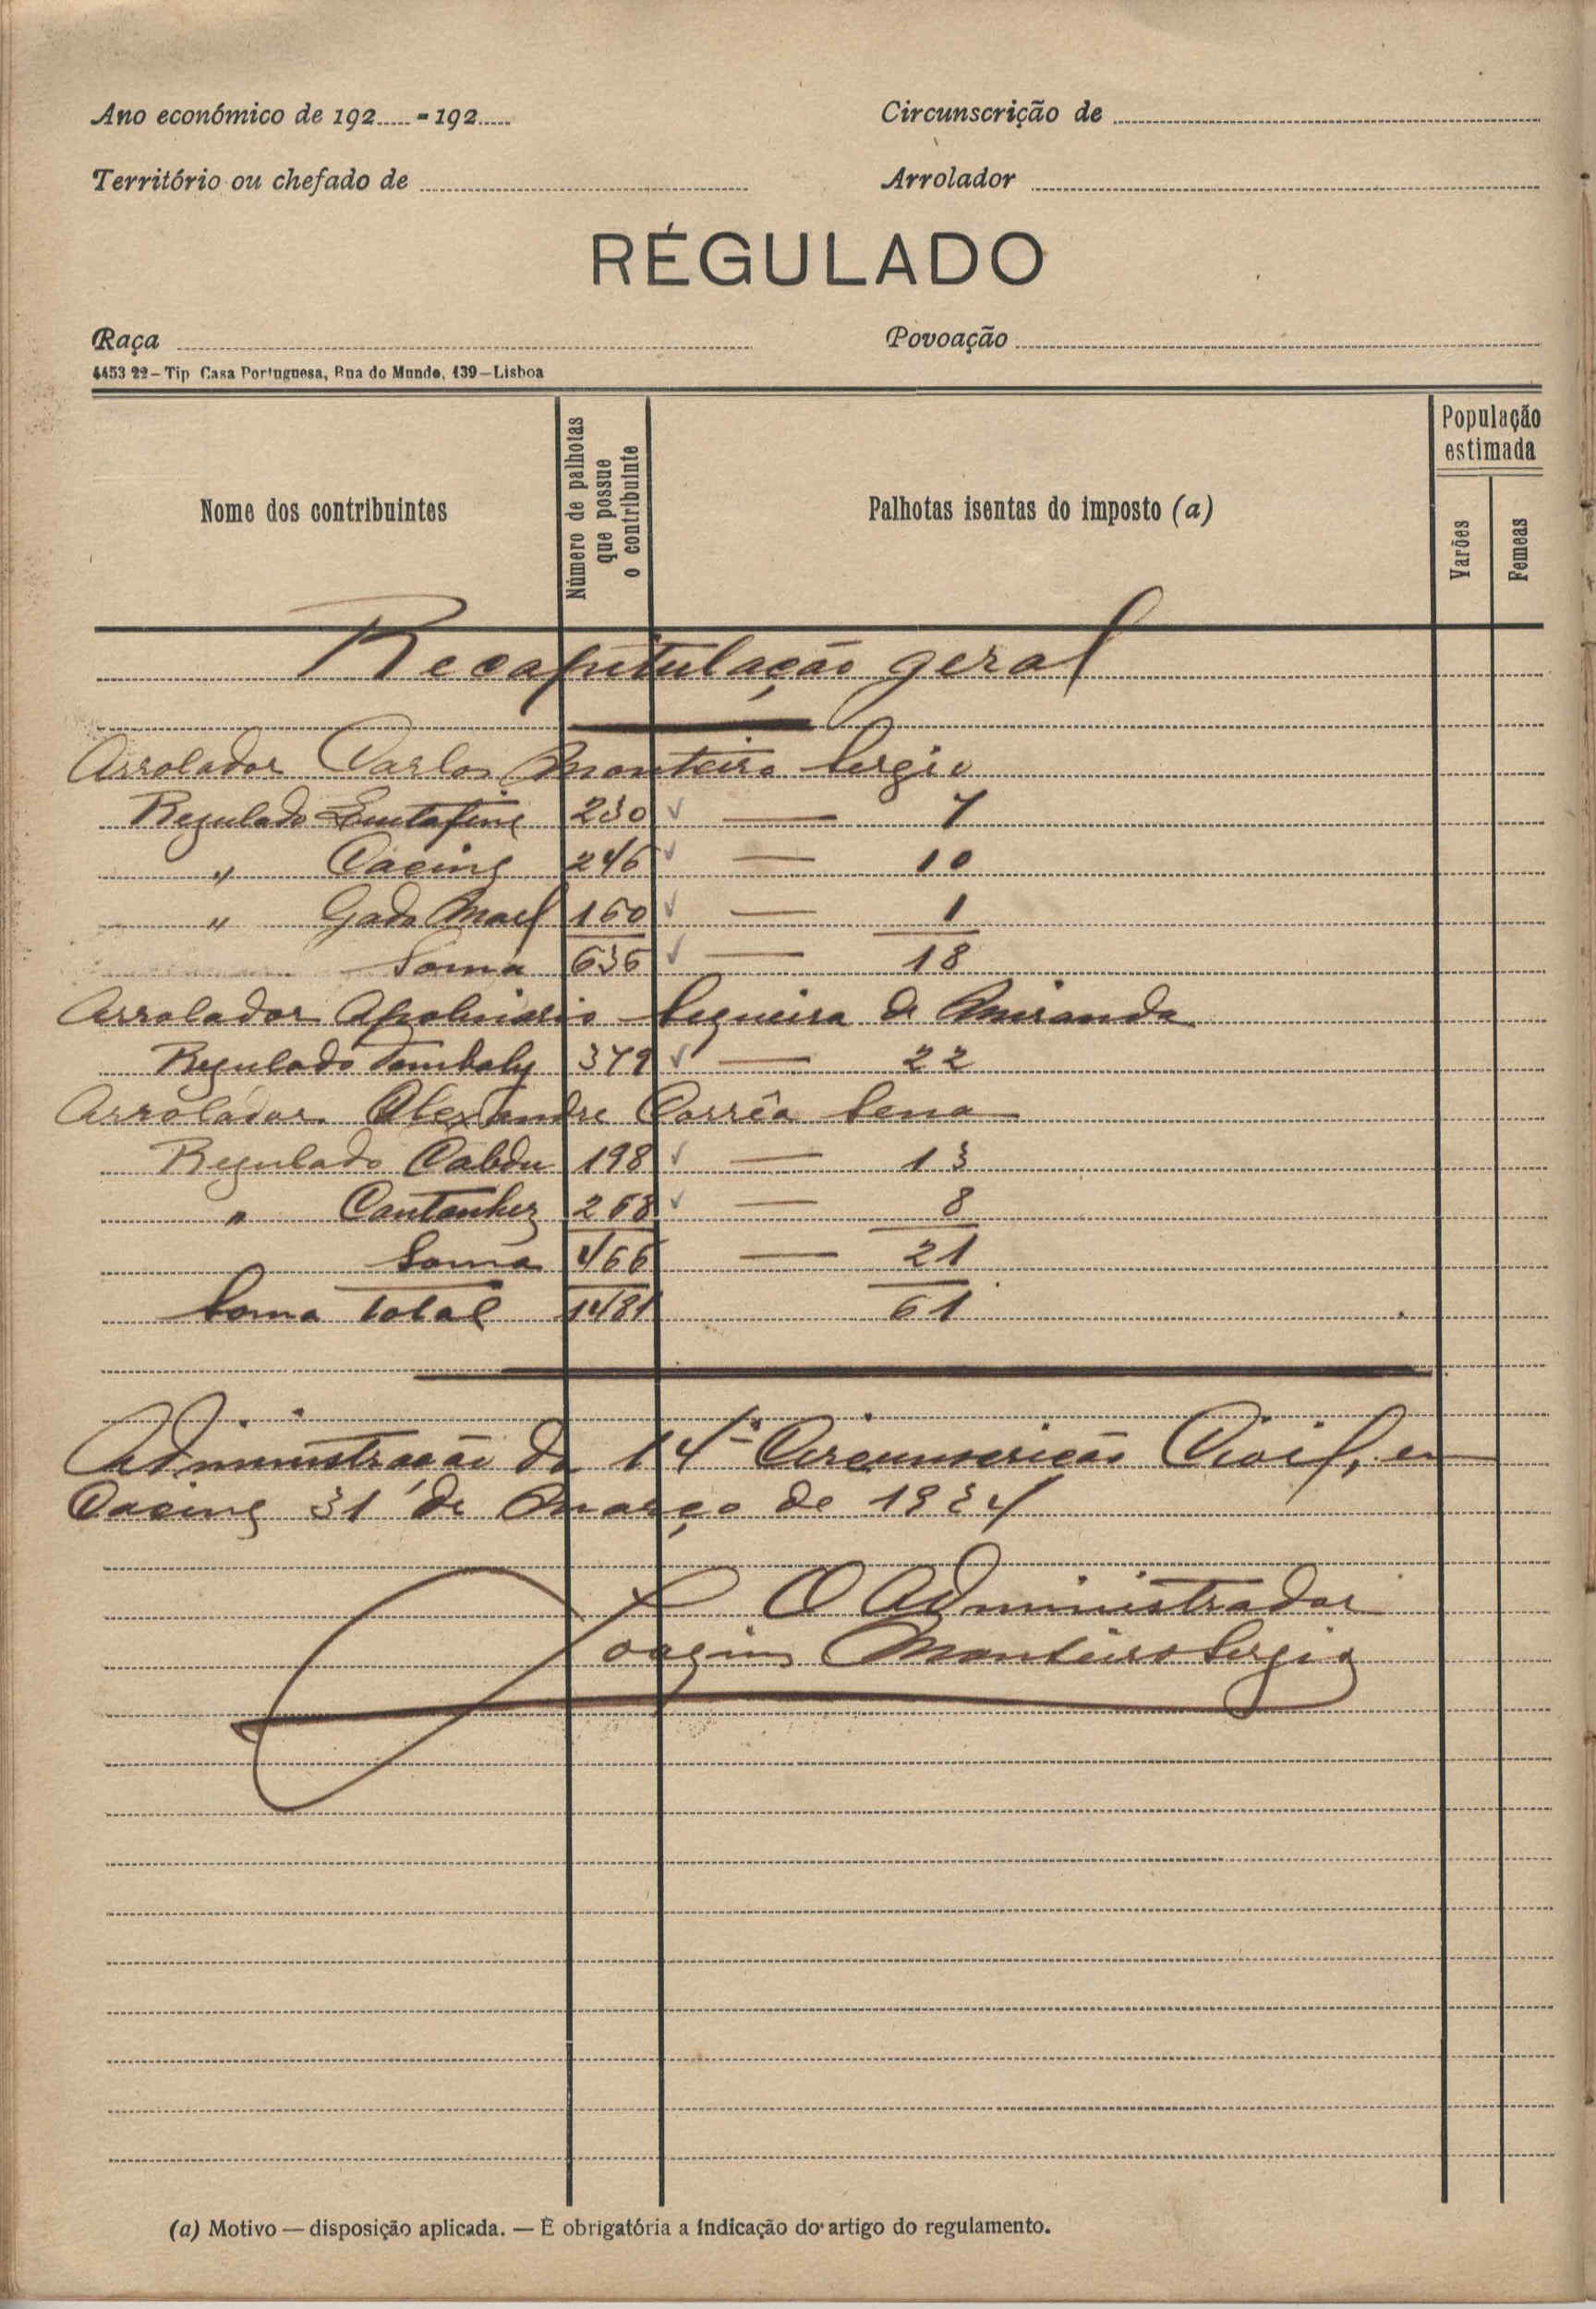 Ano económico de 192..... - 192.....
Circunscrição de
Território ou chefado de
Arrolador
RÉGULADO
Raça
Povoação
4453 22 – Tip Casa Portuguesa, Rua do Mundo, 139 – Lisboa
Nome dos contribuintes
Número de palhotas que possue o contribuinte
Palhotas isentas do imposto (a)
População estimada
Varões
Femeas
Recapitulação geral
Arrolador Carlos Monteiro Sergio
Regulado 230 — 7
" Cacine 246 — 10
" Gado Mael 160 — 1
Soma 636 — 18
Arrolador Apolinario Sequeira de Miranda
Regulado Tombaly 379 — 22
Arrolador Alexandre Corrêa Sena
Regulado Cabdu 198 — 13
" Cantanhez 268 — 8
Soma 466 — 21
Soma total 1481 61
Administração da 14ª Circunscrição Civil, em
Cacine 31 de Março de 1924
O Administrador
Joaqim Monteiro Sergio
(a) Motivo — disposição aplicada. — É obrigatória a indicação do artigo do regulamento.